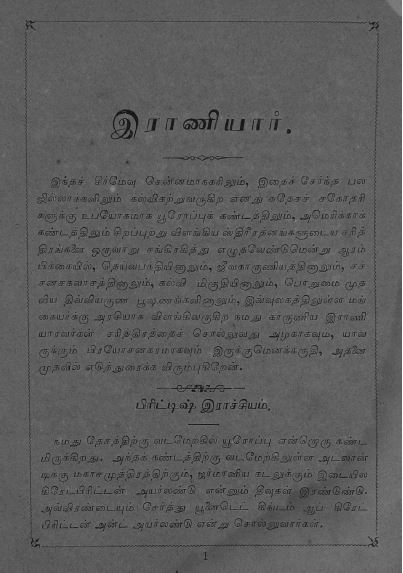 இராணியார்.
இந்தச் சிர்மேவு சென்னமாநகரிலும், இதைச் சேர்ந்த பல
ஜில்லாக்களிலும் கல்விகற்றுவருகிற எனது சுதேசச் சகோதரி
களுக்கு உபயோகமாக யூரோப்புக் கண்டத்திலும், அமெரிக்காக்
கண்டத்திலும் சிறப்புற்று விளங்கிய ஸ்திரீரத்னங்களுடைய சரித்
திரங்களை ஒருவாறு சங்கிரகித்து எழுதவேண்டுமென்று ஆரம்
பிக்கையில், தெய்வபத்தியினாலும், ஜீவகாருணியத்தினாலும், சற்
சனசகவாசத்தினாலும், கல்வி மிகுதியினாலும், பொறுமை முத
லிய திவ்வியகுண பூஷணங்களினாலும், இவ்வுலகத்திலுள்ள மங்
கையர்க்கு அரசியாக விளங்கிவருகிற நமது காருணிய இராணி
யாரவர்கள் சரித்திரத்தைச் சொல்லுவது அழகாகவும், யாவ
ருக்கும் பிரயோசனகரமாகவும் இருக்குமெனக்கருதி, அதனை
முதலில் எடுத்துரைக்க விரும்புகிறேன்.
பிரிட்டிஷ் இராச்சியம்.
நமது தேசத்திற்கு வடமேற்கில் யூரோப்பு என்றொரு கண்ட
மிருக்கிறது. அந்தக் கண்டத்திற்கு வடமேற்கிலுள்ள அட்லாண்
டிக்கு மகாசமுத்திரத்திற்கும், ஜர்மானிய கடலுக்கும் இடையில்
கிரேட்பிரிட்டன் அயர்லண்டு என்னும் தீவுகள் இரண்டுண்டு.
அவ்விரண்டையும் சேர்த்து யூனைடெட் கிங்டம் ஆப் கிரேட்
பிரிட்டன் அண்ட் அயர்லண்டு என்று சொல்லுவார்கள்.
1